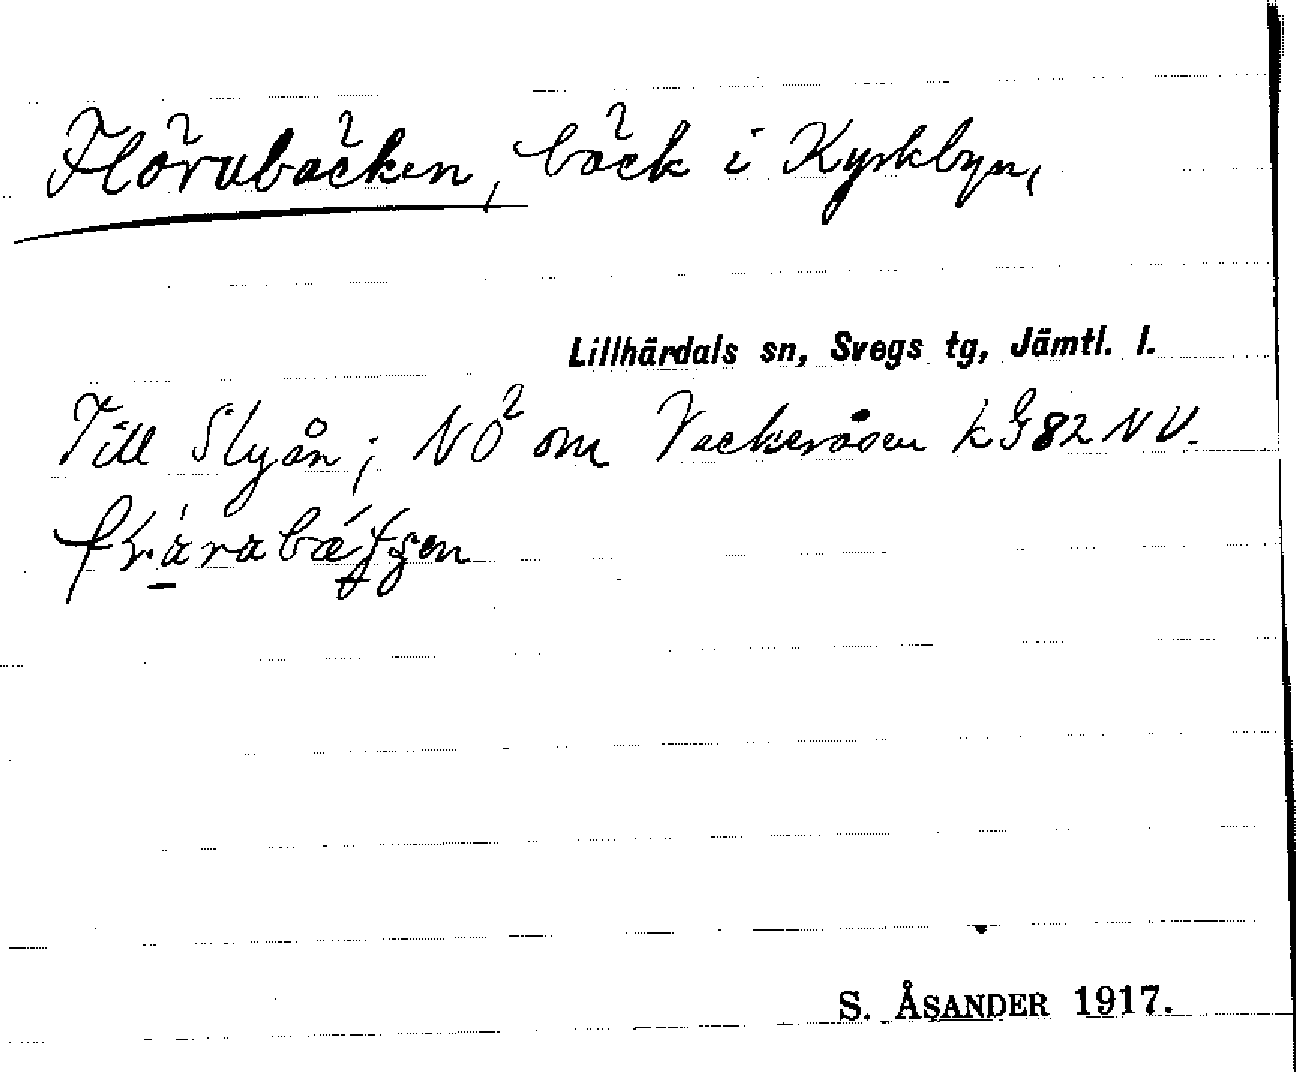 Flörubäcken, bäck i Kyrkbyn,
Lillhärdals sn, Svegs tg, Jämtl. l.
Till Slyån; NÖ om Vackeråsen kG82NV.
S. ÅSANDER 1917.